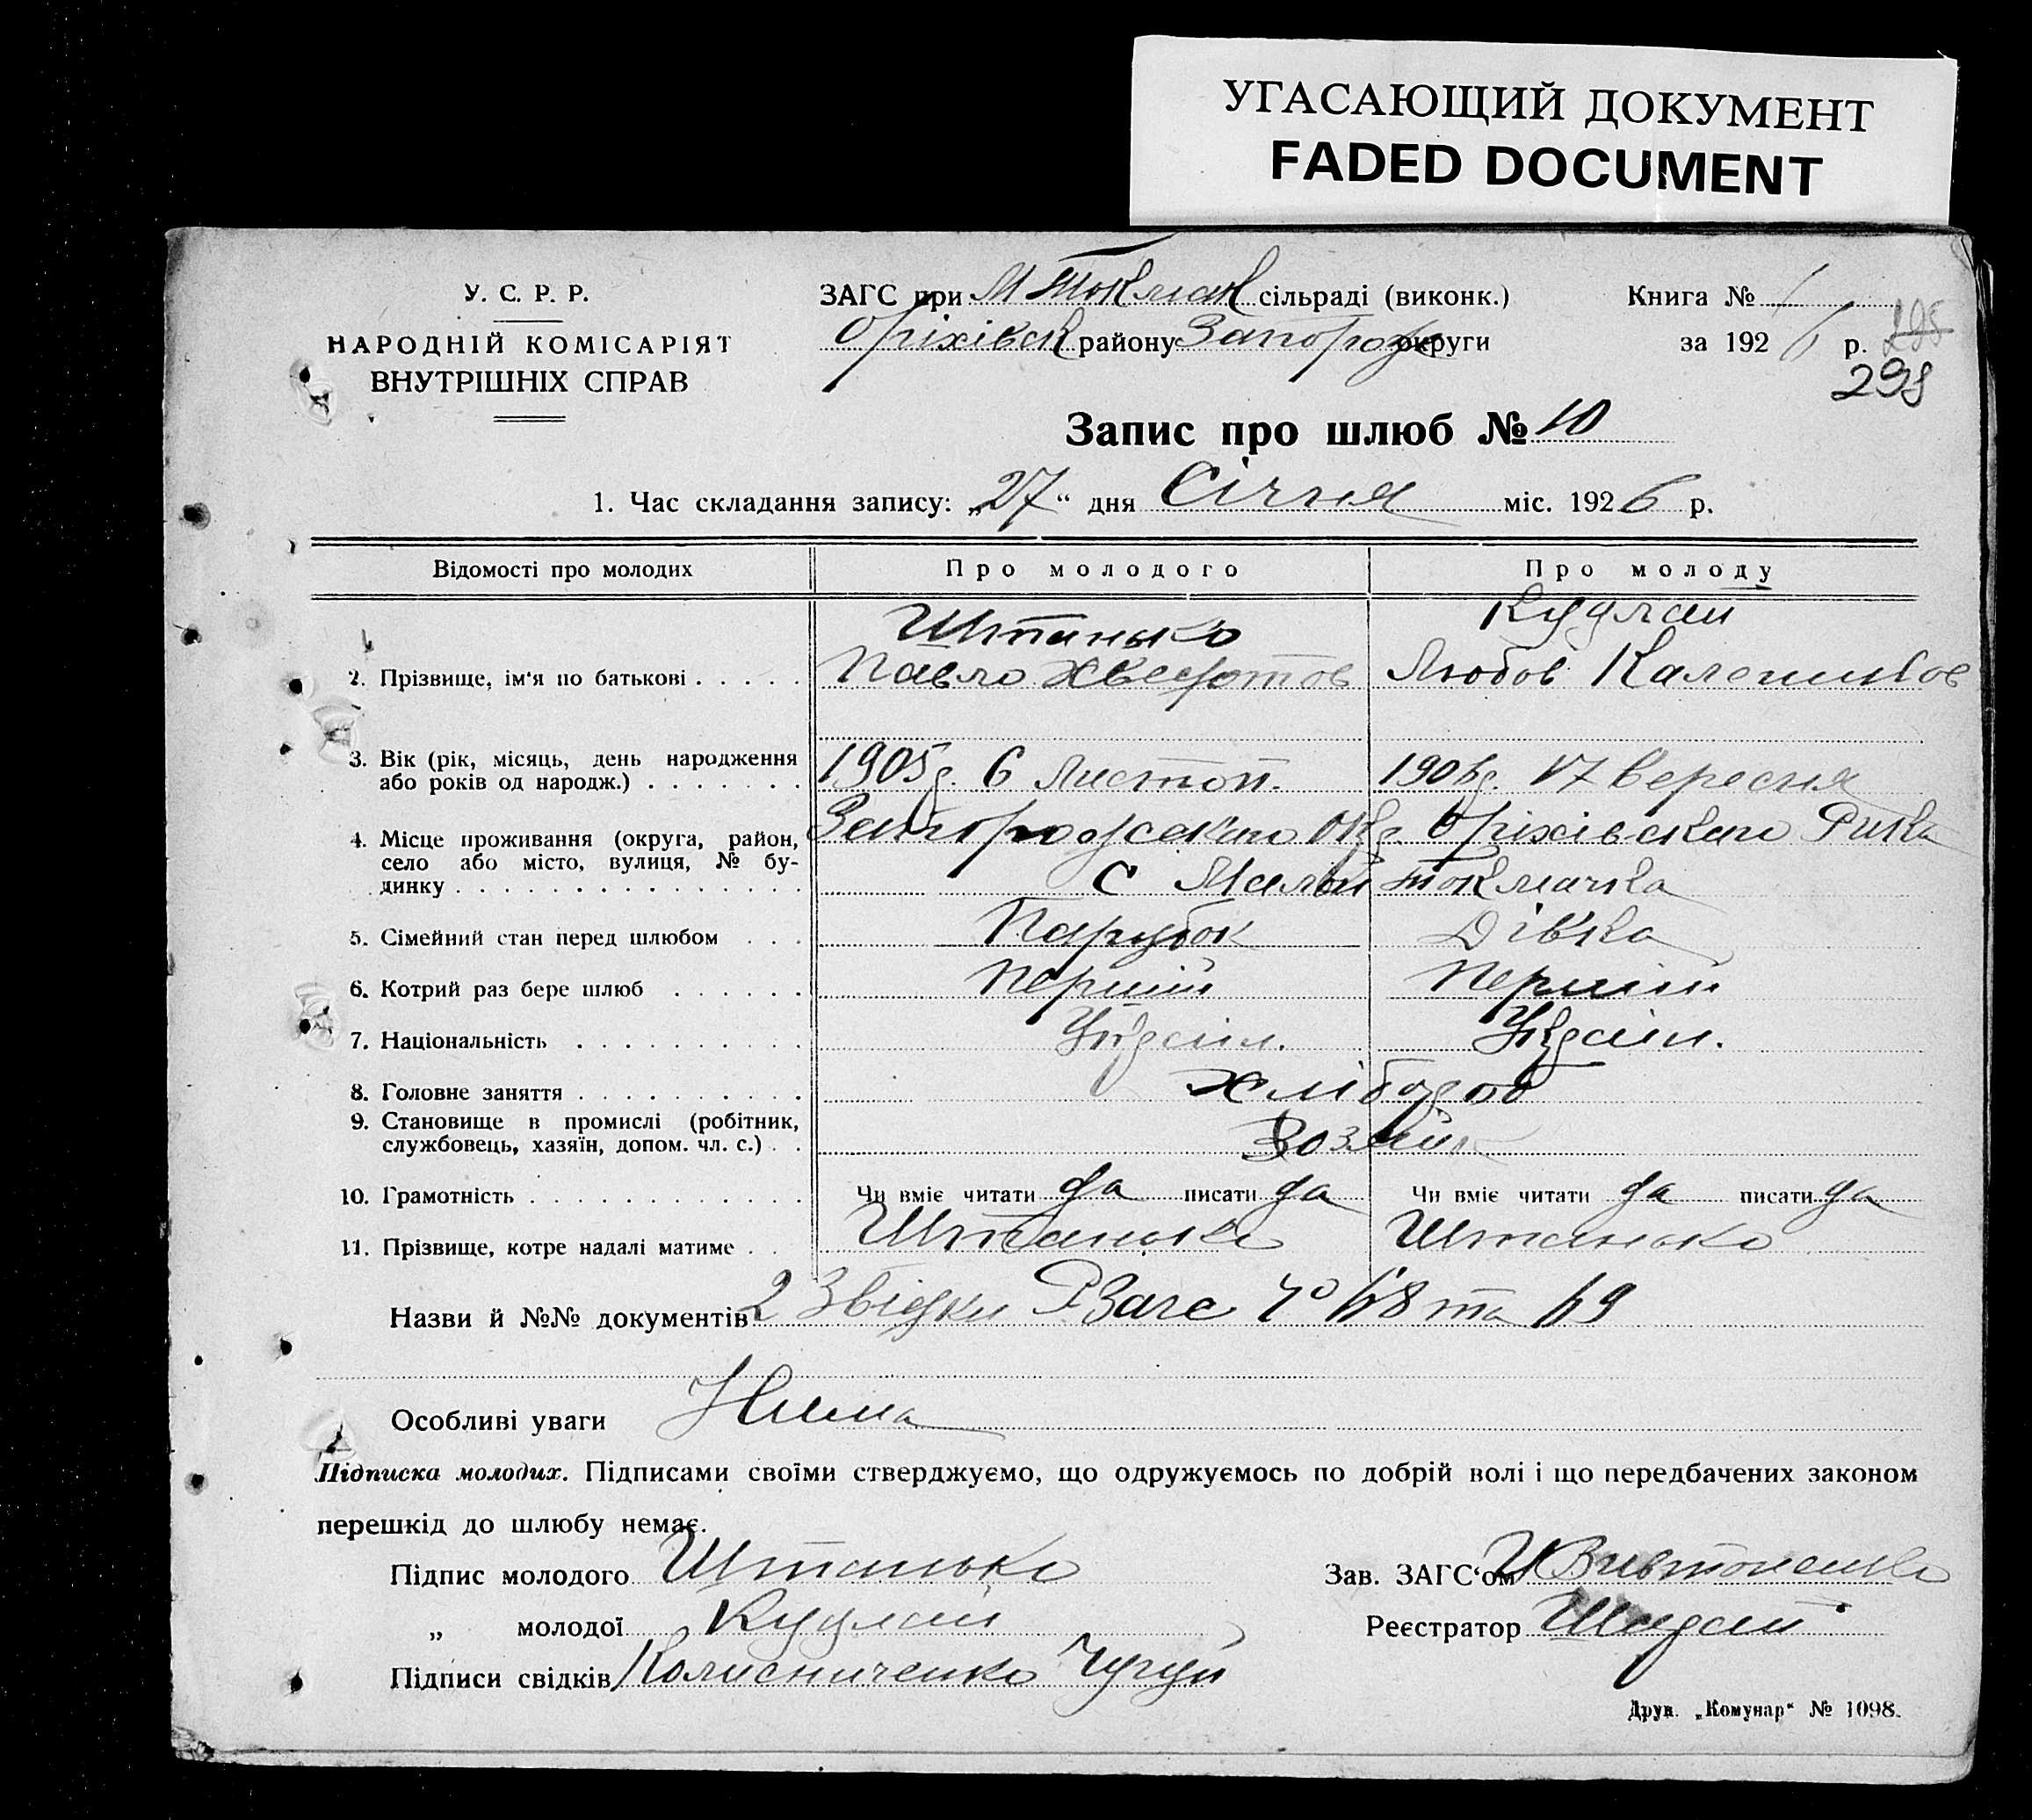 УГАСАЮЩИЙ ДОКУМЕНТ
FADED DOCUMENT
У. С. Р. Р.
НАРОДНІЙ КОМІСАРІЯТ
ВНУТРІШНІХ СПРАВ
ЗАГС при М Токмак сільраді (виконк.)
Оріхівск району Запорозк округи
Книга № 1
за 192 6 р.
298
Запис про шлюб № 10
1. Час складання запису: „27“ дня Січня міс. 1926 р.
Відомості про молодих Про молодого Про молоду
Штанько Кудлай
2. Прізвище, ім'я по батькові . . . . . Павло Хведотов Любов
3. Вік (рік, місяць, день народження або років од народж.) . . . . . . . 1905 р. 6 Листоп. 1906 р. 17 Вересня
4. Місце проживання (округа, район, Запорожскаго Окр. Оріхівскаго
село або місто, вулиця, № бу-
динку . . . . . . . . . . . . . . . с Малой Токмачка
5. Сімейний стан перед шлюбом . . . Парубок Дівка
6. Котрий раз бере шлюб . . . . . . Перший Перший
7. Національність . . . . . . . . . . Україн. Україн.
8. Головне заняття . . . . . . . . . . Хлібороб
9. Становище в промислі (робітник,
службовець, хазяїн, допом. чл. с.) . .
10. Грамотність . . . . . . . . . . . . Чи вміє читати да писати да Чи вміє читати да писати да
11. Прізвище, котре надалі матиме . . Штанько Штанько
Назви й №№ документів 2 Звідки РЗагс 68 та 69
Особливі уваги Нима
Підписка молодих. Підписами своїми стверджуємо, що одружуємось по добрій волі і що передбачених законом
перешкід до шлюбу немає.
Підпис молодого Штанько
Зав. ЗАГС'ом
„ молодої Кудлай
Реєстратор
Підписи свідків Колисниченко Чугуй
Друк. „Комунар“ № 1098.